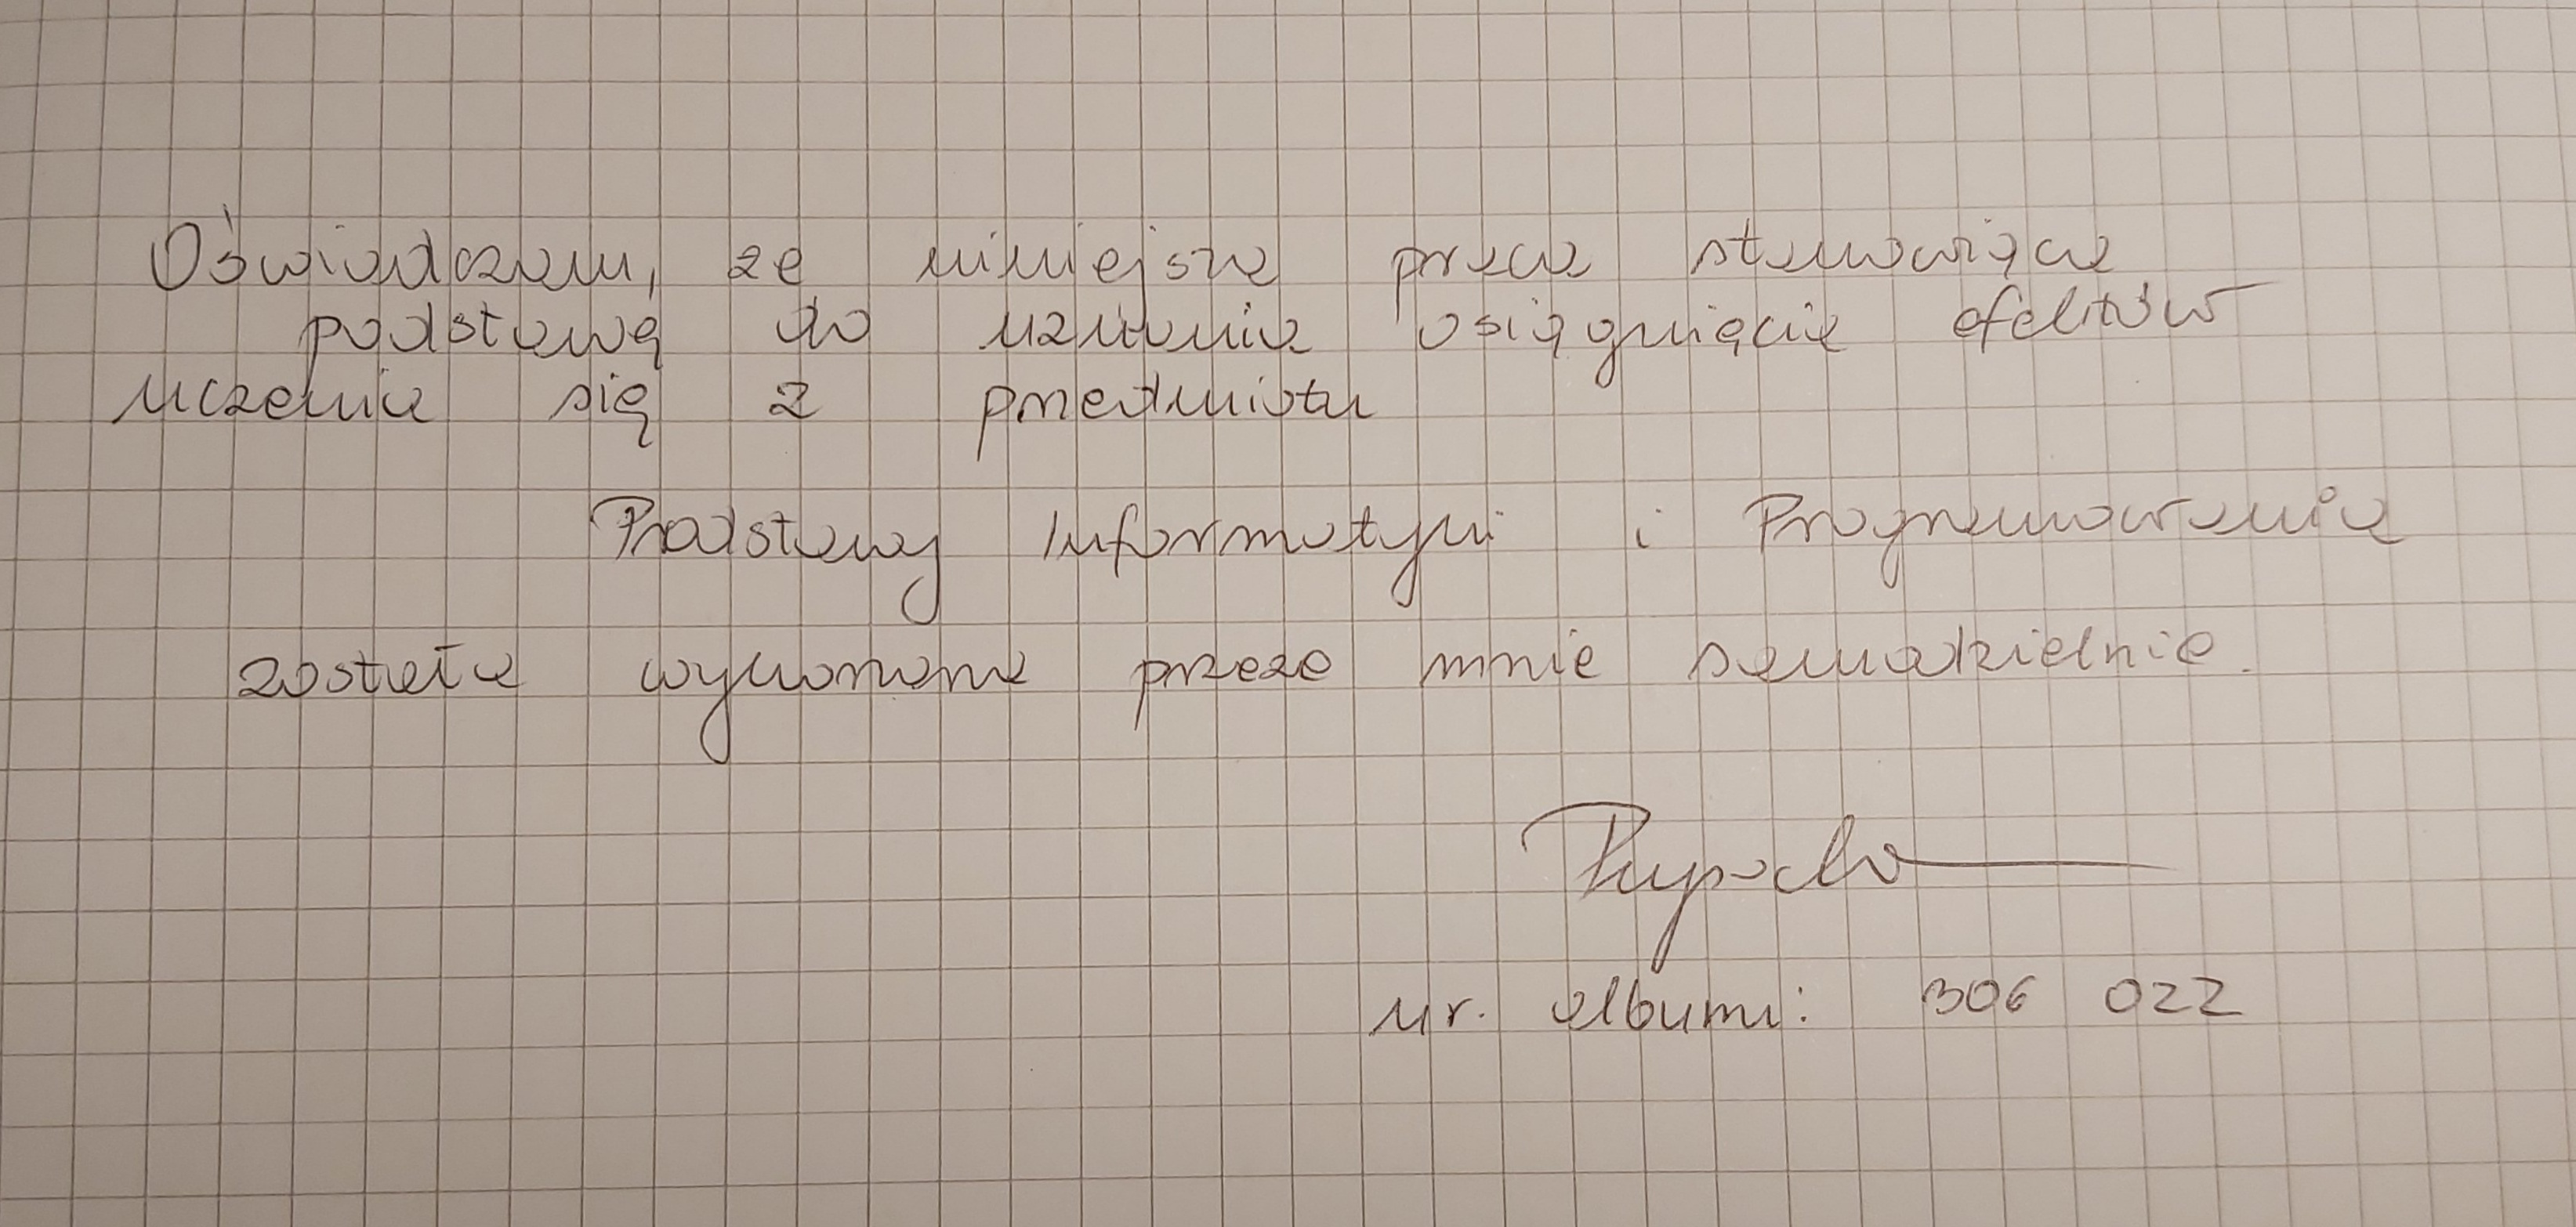 Oświadczam, że niniejsza praca stanowiąca
podstawę do uznania osiągnięcia efektów
uczenia się z przedmiotu
Podstawy Informatyki i Programowania
została wykonana przeze mnie samodzielnie.
nr. albumu: 306 022